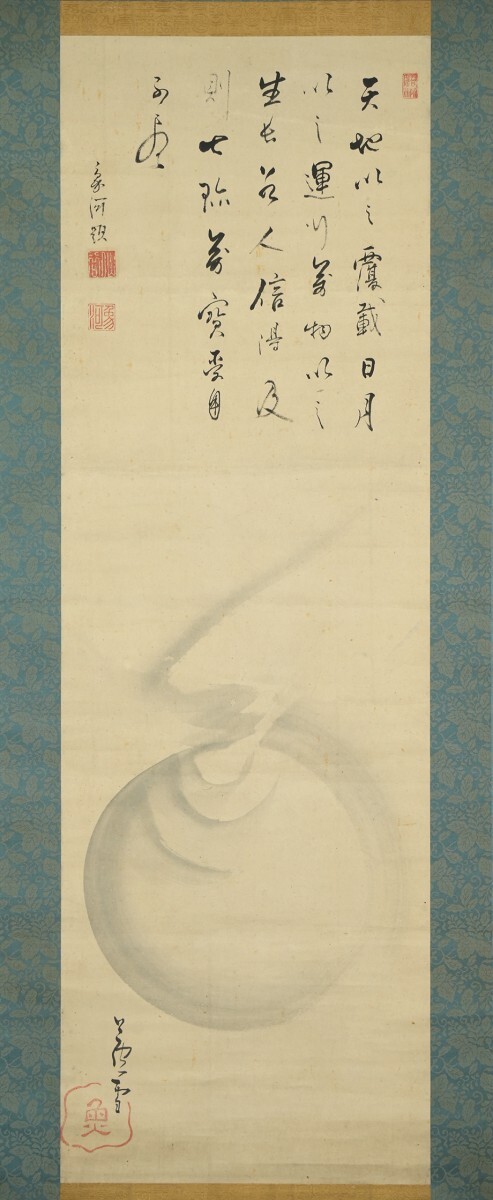 天地以之覆載日月
以之運行萬物以之
生長若人信得及
則七珍萬寶受用
不盡
豪潮題
蘆雪
魚